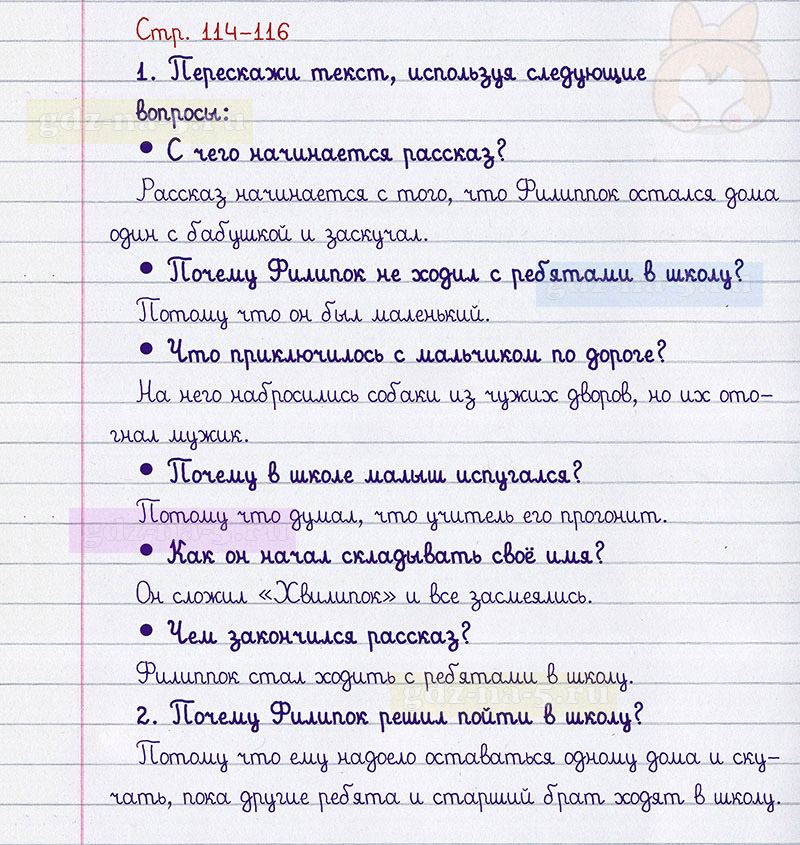 Стр. 114-116
1. Перескажи текст, используя следующие
вопросы:
gdz-na-5.ru
• С чего начинается рассказ?
Рассказ начинается с того, что Филиппок остался дома
один с бабушкой и заскучал.
• Почему Филипок не ходил с ребятами в школу?
gdz-na-5.ru
Потому что он был маленький.
• Что приключилось с мальчиком по дороге?
На него набросились собаки из чужих дворов, но их ото-
гнал мужик.
• Почему в школе малыш испугался?
Потому что думал, что учитель его прогонит.
gdz-na-5.ru
• Как он начал складывать своё имя?
Он сложил «Хвилипок» и все засмеялись.
• Чем закончился рассказ?
Филиппок стал ходить с ребятами в школу.
gdz-na-5.ru
2. Почему Филипок решил пойти в школу?
Потому что ему надоело оставаться одному дома и ску-
чать, пока другие ребята и старший брат ходят в школу.